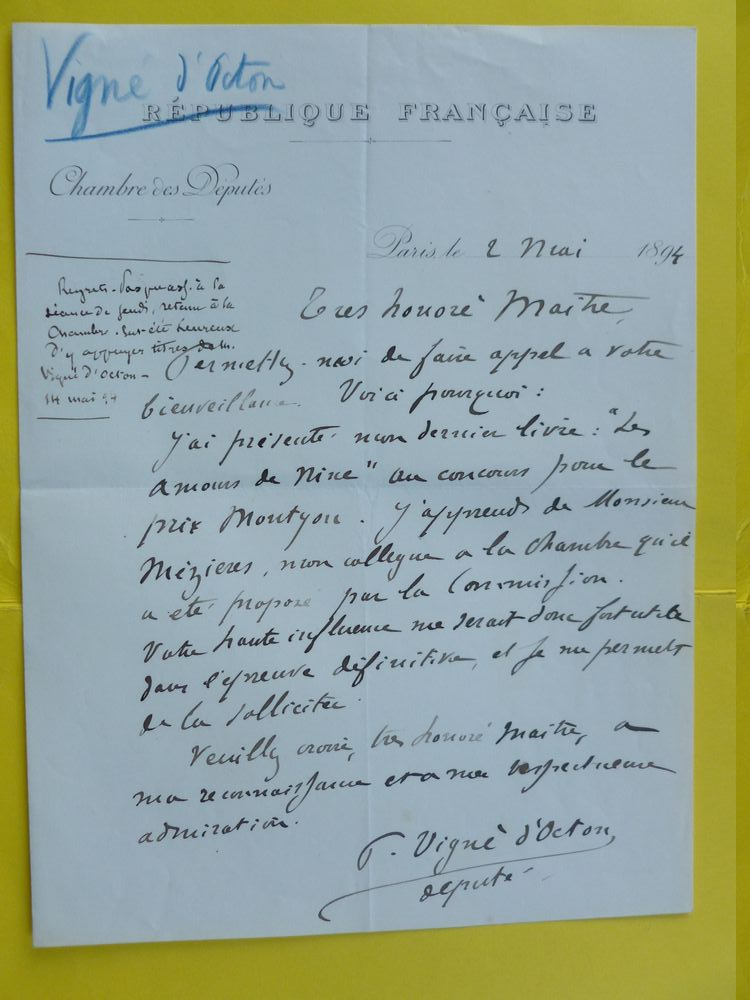 Vigné d'Octon
RÉPUBLIQUE FRANÇAISE
Chambre des Députés
Paris, le 2 Mai 1894
Regrets. Pas pu ass. à la
séance de jeudi, retenu à la
Chambre.
heureux
d'y appuyer titres de M.
Vigné d'Octon -
14 mai 94
Tres honoré Maitre,
Permettez-moi de faire appel a votre
bienveillance. Voici pourquoi :
J'ai présenté mon dernier livre : "Les
amours de Nine" au concours pour le
prix Montyon. J'apprends de Monsieur
Mézieres, mon collegue a la Chambre qu'il
a été proposé par la Commission.
Votre haute influence me serait donc fort utile
dans l'épreuve définitive, et je me permets
de la solliciter.
Veuillez croire, tres honoré Maitre, a
ma reconnaissance et a ma respectueuse
admiration.
P. Vigné d'Octon,
député